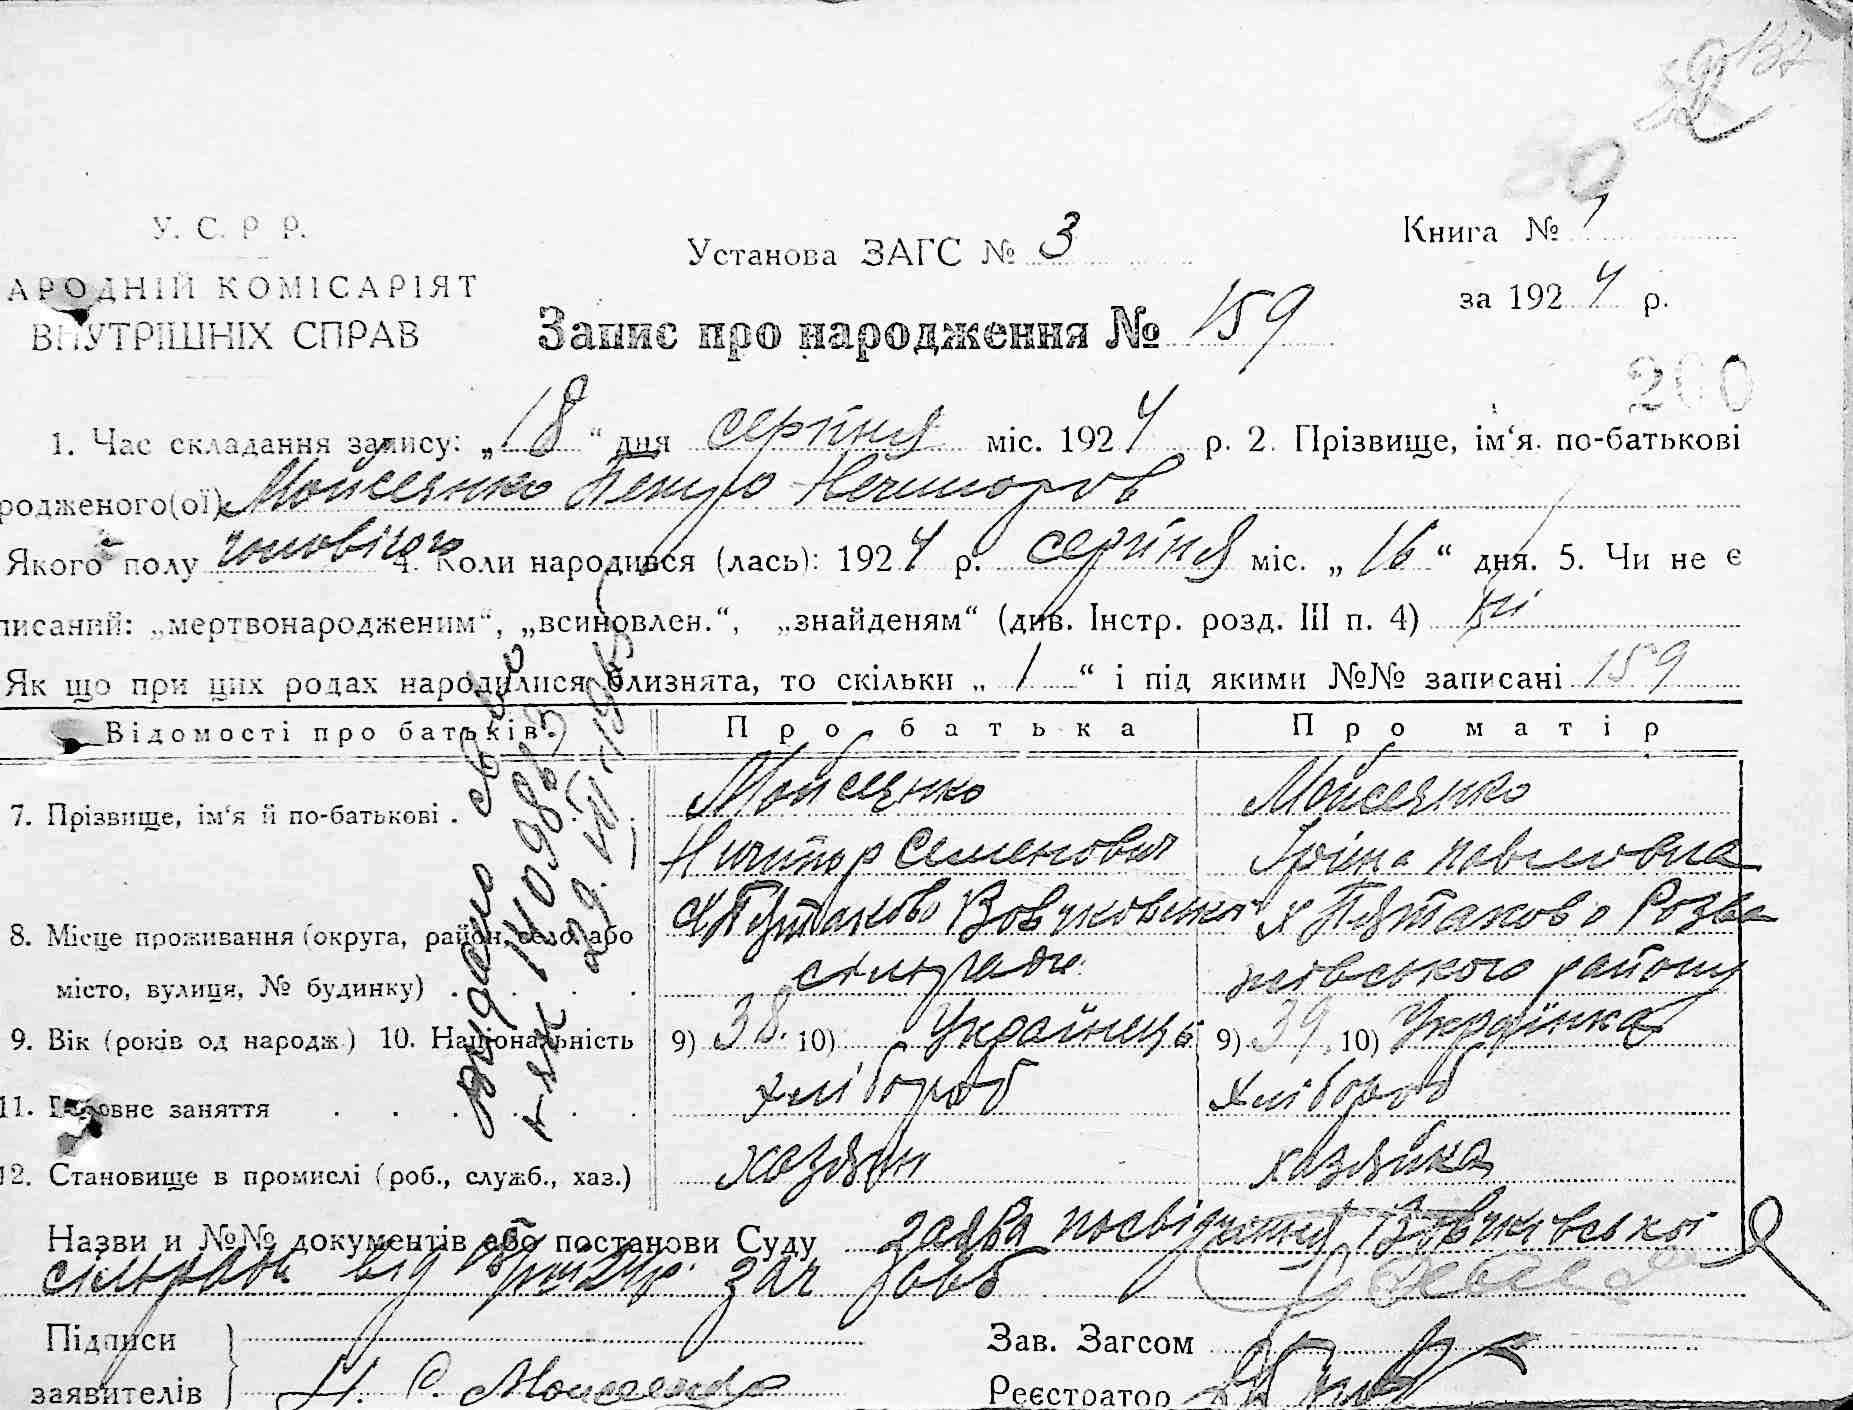 У. С. Р Р.
АРОДНІЙ КОМІСАРІЯТ
ВНУТРІШНІХ СПРАВ
Установа ЗАГС № 3
Книга № 1
за 1924 р.
Запис про народження № 159
200
1. Час складання запису: „18“ дня серпня міс. 1924 р. 2. Прізвище, ім‘я. по-батькові
родженого(ої) Мойсеенко Петро Ничипоров
Якого полу чоловічого 4. Коли народився (лась): 1924 р. серпня міс. „16“ дня. 5. Чи не є
писаний: „мертвонародженим“, „всиновлен.“, „знайденям“ (див. Інстр. розд. III п. 4) ні
Як що при цих родах народилися близнята, то скільки „1“ і під якими №№ записані 159
Відомості про батьків. Про батька Про матір
7. Прізвище, ім‘я й по-батькові . Мойсеенко Мойсеенко
Ничипор Семенович Павловна
8. Місце проживання (округа, район, село або
місто, вулиця, № будинку) сільради району
9. Вік (років од народж.) 10. Національність 9) 38. 10) Українець 9) 39. 10) Українка
11. Головне заняття хлібороб хлібороб
12. Становище в промислі (роб., служб., хаз.) хазяин хазяйка
Назви и №№ документів або постанови Суду заява посвідчення Вовчківської
сільради від за ч
Підписи
заявителів Н. С. Мойсеенко
Зав. Загсом
Реєстратор
видано св во
29. VII-1965